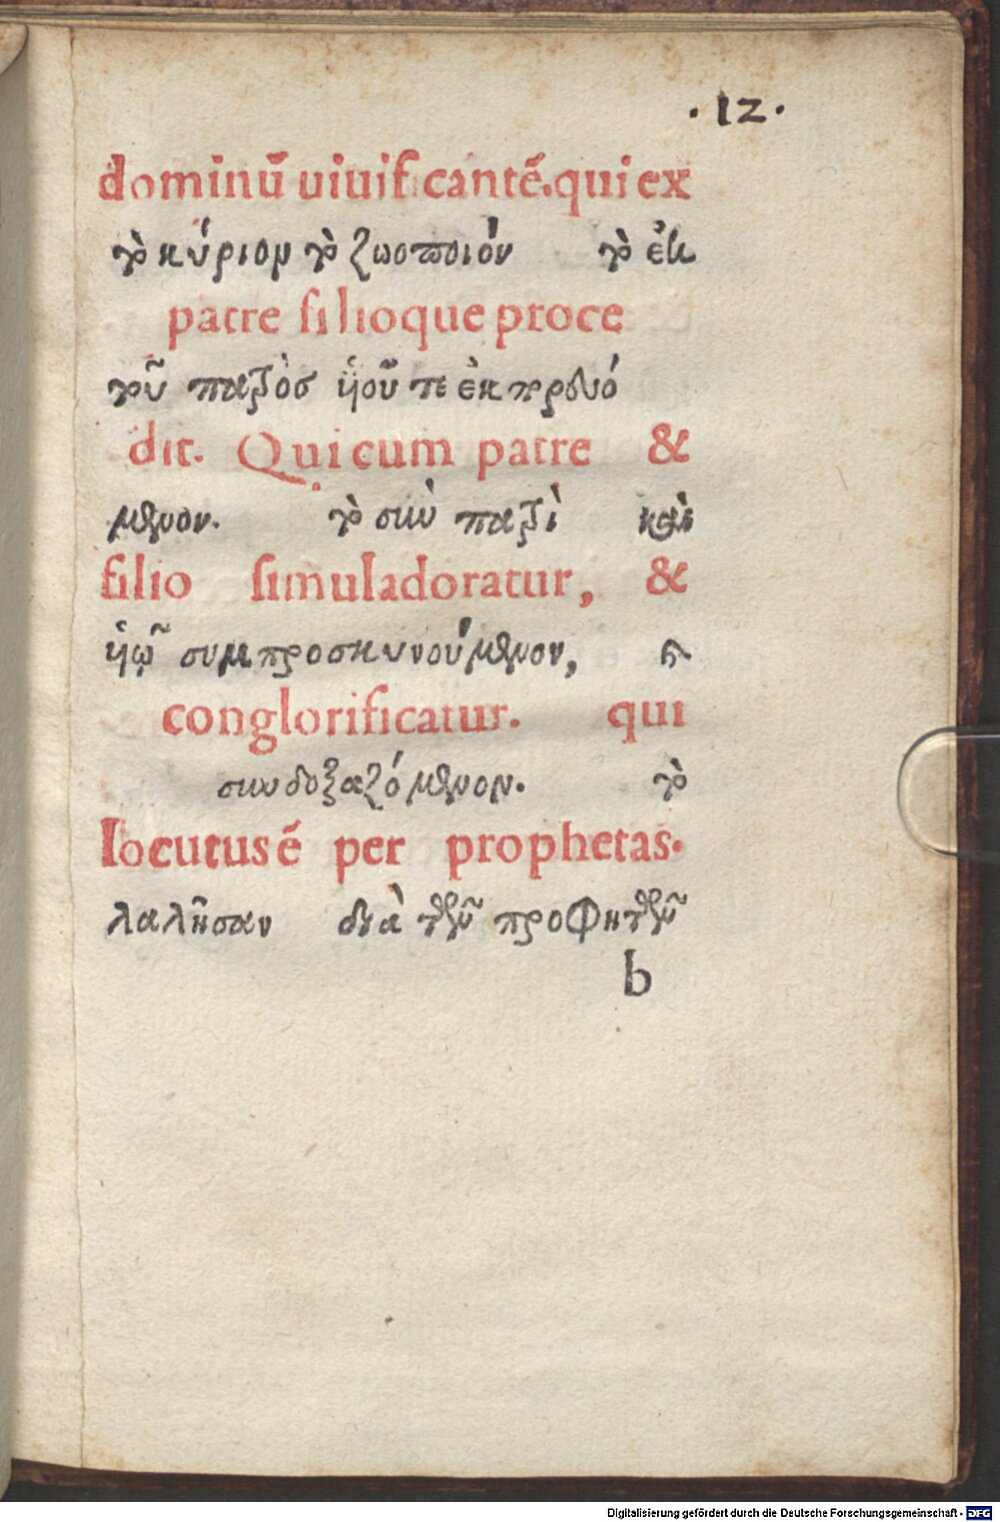 · 12 ·
dominū uiuificantē. qui ex
τὸ κύριον τὸ ζωοποιόν τὸ ἐκ
patre filioque proce
τοῦ πατρὸσ ἡοῦ τε ἐκπορευό
dit. Qui cum patre &
μενον. τὸ σὺν πατρὶ καὶ
filio simuladoratur, &
ἡῷ συμπροσκυνούμενον, ϗ
conglorificatur. qui
συνδοξαζόμενον. τὸ
locutus ē per prophetas.
λαλῆσαν διὰ τῶν προφητῶν
b
Digitalisierung gefördert durch die Deutsche Forschungsgemeinschaft - DFG